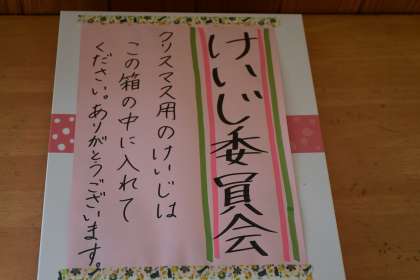 けいじ委員会
クリスマス用のけいじは
この箱の中に入れて
ください。ありがとうございます。